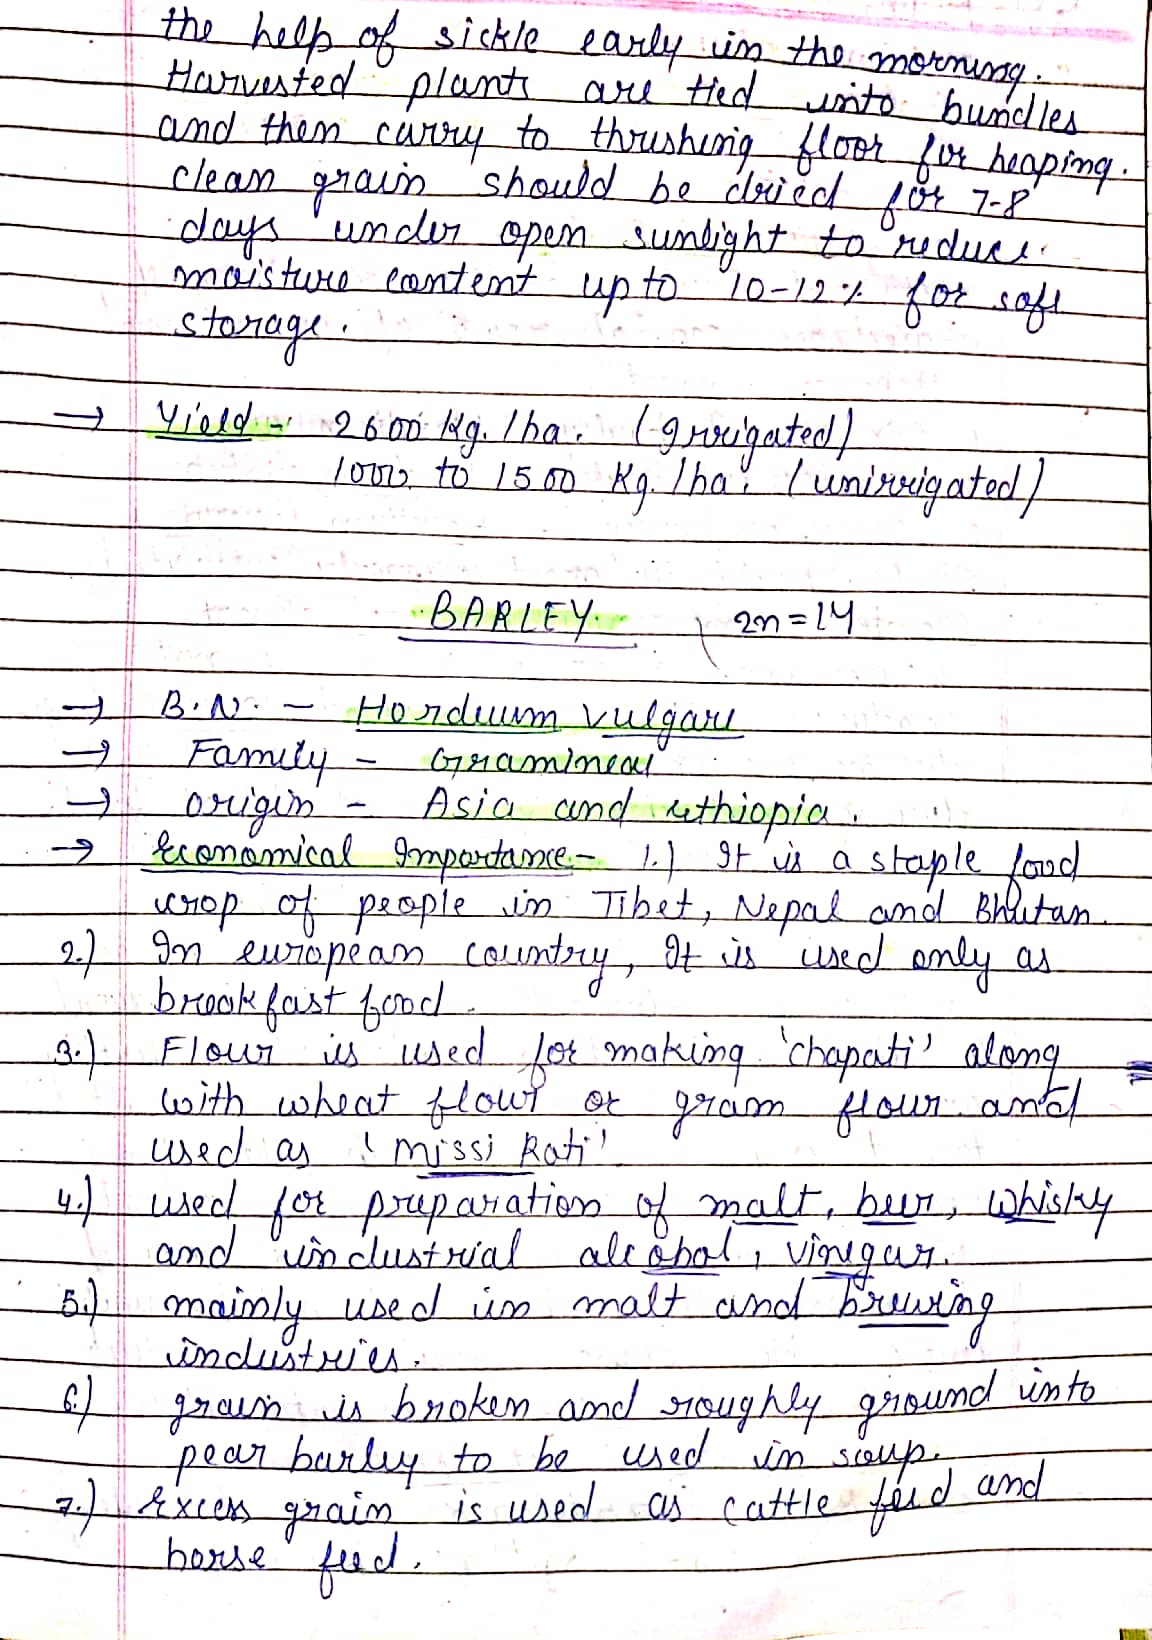 the help of sickle early in the morning.
Harvested plants are tied into bundles
and then carry to thrushing floor for heaping.
clean grain should be dried for 7-8
days under open sunlight to reduce
moisture content up to 10-12% for safe
storage.
→ Yield - 2600 Kg./ha. (Irrigated)
1000 to 1500 Kg./ha. (unirrigated)
BARLEY 2n=14
→ B.N. - Hordeum vulgare
→ Family - Gramineae
→ origin - Asia and ethiopia.
→ Economical Importance - 1.) It is a staple food
crop of people in Tibet, Nepal and Bhutan.
2.) In european country, It is used only as
breakfast food.
3.) Flour is used for making 'chapati' along
with wheat flour or gram flour and
used as 'missi Roti'
4.) used for preparation of malt, beer, whisky
and industrial alcohol, vinegar.
5.) mainly used in malt and brewing
industries.
6.) grain is broken and roughly ground into
pear barley to be used in soup.
7.) Excess grain is used as cattle feed and
horse feed.